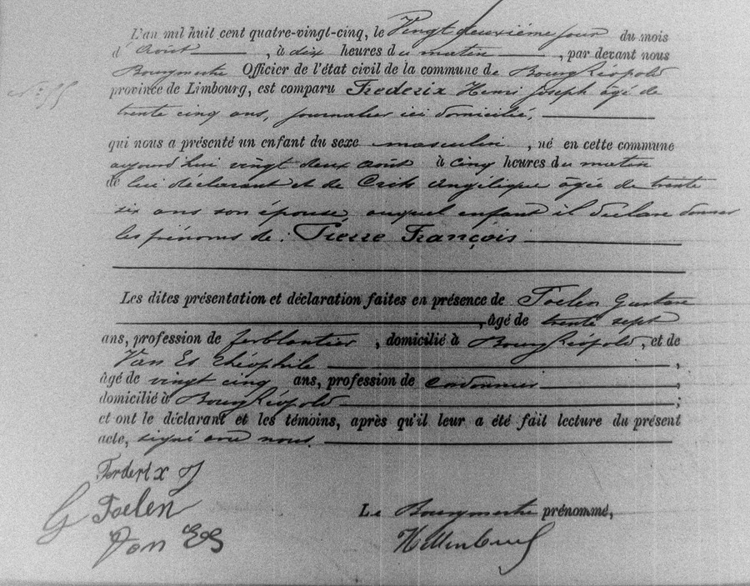 L'an mil huit cent quatre-vingt-cinq, le Vingt deuxième jour du mois
d'Août, à dix heures du matin, par devant nous
Bourgmestre Officier de l'état civil de la commune de Bourg Léopold
province de Limbourg, est comparu Frederix Henri Joseph âgé de
trente cinq ans, journalier ici domicilié,
qui nous a présenté un enfant du sexe masculin, né en cette commune
aujourd'hui vingt deux août à cinq heures du matin
de lui déclarant et de Angélique âgée de trente
six ans son épouse, auquel enfant il déclare donner
les prénoms de: Pierre François
Les dites présentation et déclaration faites en présence de Toelen Gustave
, âgé de trente sept
ans, profession de ferblantier, domicilié à Bourg Léopold, et de
Van Es Théophile,
âgé de vingt cinq ans, profession de cordonnier
domicilié à Bourg Léopold;
et ont le déclarant et les témoins, après qu'il leur a été fait lecture du présent
acte, signé avec nous.
G Toelen
Van Es
Le Bourgmestre prénommé,